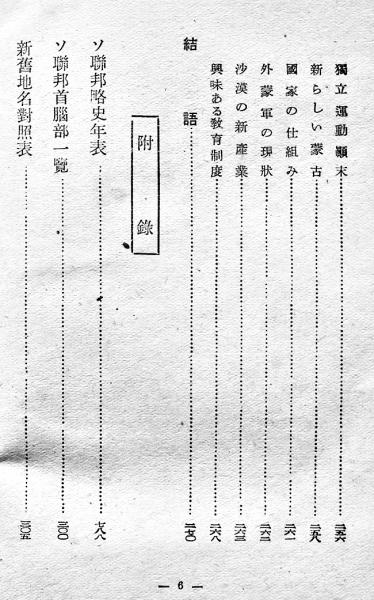 獨立運動顚末……二五六
新らしい蒙古……
國家の仕組み……二六一
外蒙軍の現狀……二六二
沙漠の新產業……二六三
興味ある敎育制度……二六八
結語……二七〇
附錄
ソ聯邦略史年表……
ソ聯邦首腦部一覽……三〇〇
新舊地名對照表……三〇五
— 6 —